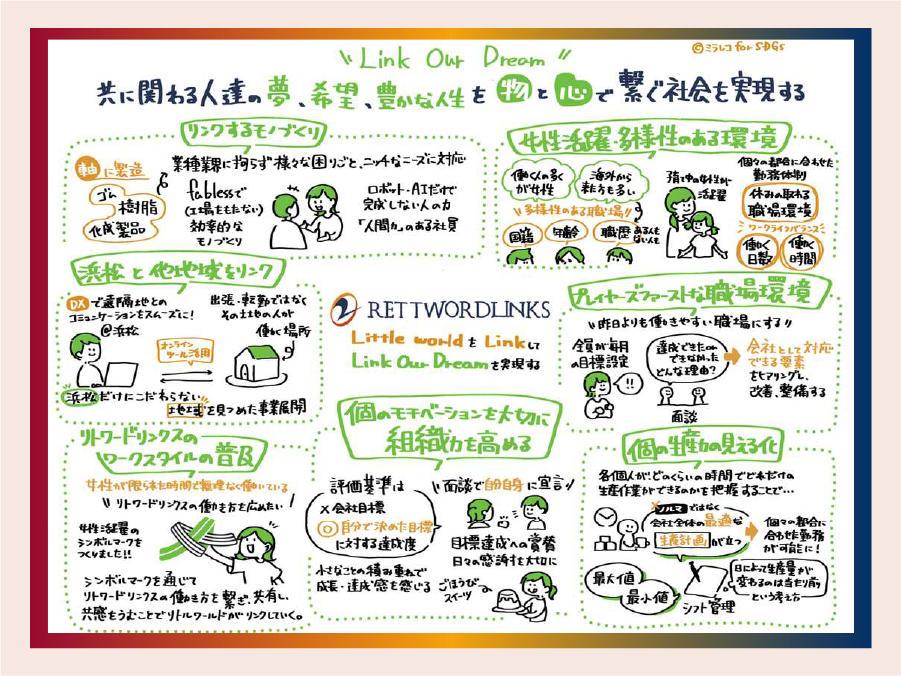 ©ミラレコ for SDGs
\\ Link Our Dream //
共に関わる人達の夢、希望、豊かな人生を物と心で繋ぐ社会を実現する
リンクするモノづくり
業種業界に拘らず様々な困りごと、ニッチなニーズに対応
軸に製造
ゴム
樹脂
化成製品
fablessで
(工場をもたない)
効率的な
モノづくり
ロボット・AIだけで
完成しない人の力
「人間力」のある社員
女性活躍・多様性のある環境
働く人の多く
が女性
海外から
来た方も多い
\\多様性のある職場!!
国籍
年齢
職歴
ある人も
ない人も
子育て中の女性が
活躍
個々の都合に合わせた
勤務体制
休みの取れる
職場環境
ワークライフバランス
働く
日数
働く
時間
浜松と他地域をリンク
DXで遠隔地との
コミュニケーションもスムーズに!
@浜松
オンライン
ツール活用
出張・転勤ではなく
その土地の人が
働く場所
浜松だけにこだわらない
地域を見つめた事業展開
RETTWORDLINKS
Little worldをLinkして
Link Our Dreamを実現する
プレイヤーズファーストな職場環境
\\昨日よりも働きやすい職場にする//
全員が毎月
の目標設定
!!
達成できたorできなかった
どんな理由?
面談
会社として対応
できる要素
をヒアリングし、
改善、整備する
リトワードリンクスの
ワークスタイルの普及
女性が限られた時間で無理なく働いている
\\リトワードリンクスの働き方を広めたい!
女性活躍の
シンボルマークを
つくりました!!
シンボルマークを通じて
リトワードリンクスの働き方を繋ぎ、共有し、
共感をうむことでリトルワールドがリンクしていく。
個のモチベーションを大切に
組織力を高める
評価基準は
×会社目標
◎自分で決めた目標
に対する達成度
小さなことの積み重ねで
成長・達成感を感じる
\\面談で自分自身に宣言//
目標達成への賞賛
日々の感謝を大切に
ごほうび
スイーツ
個の生産力の見える化
各個人がどのくらいの時間でどれだけの
生産作業ができるのかを把握することで…
×ノルマではなく
会社全体の最適な
生産計画が立つ
個々の都合に
合わせた勤務
が可能に!
最大値
最小値
シフト管理
日によって生産量が
変わるのは当たり前
という考え方